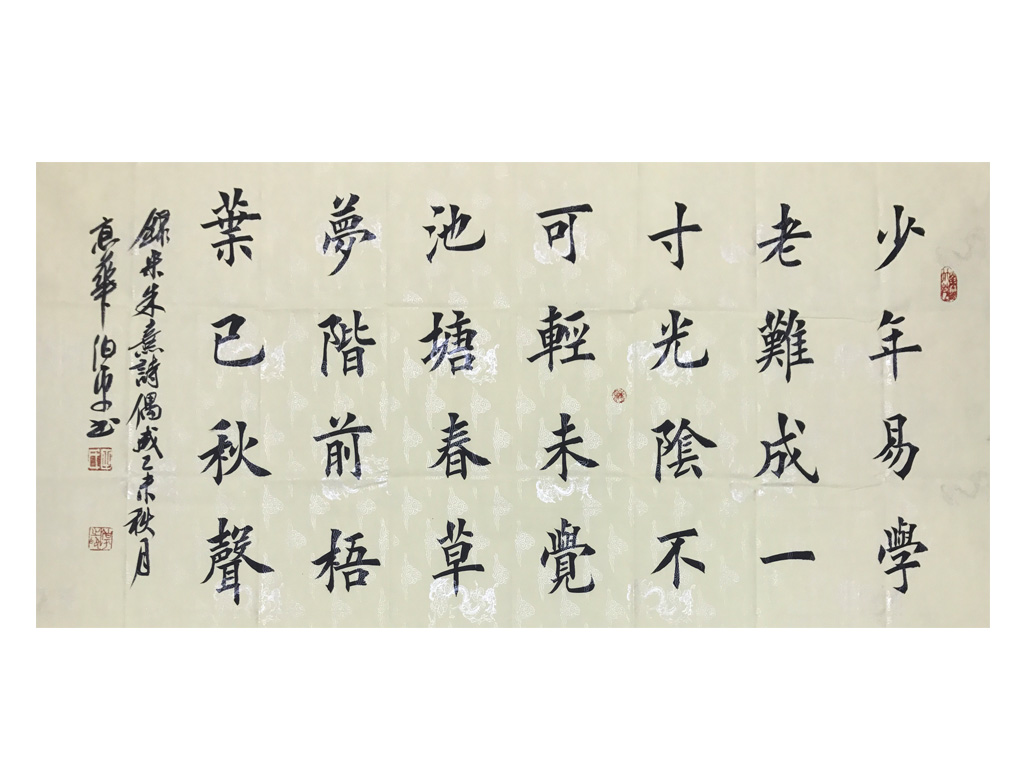 少年易學
老難成一
寸光陰不
可輕未覺
池塘春草
夢階前梧
葉已秋聲
錄宋朱熹詩偶成乙未秋月
京華伯平书